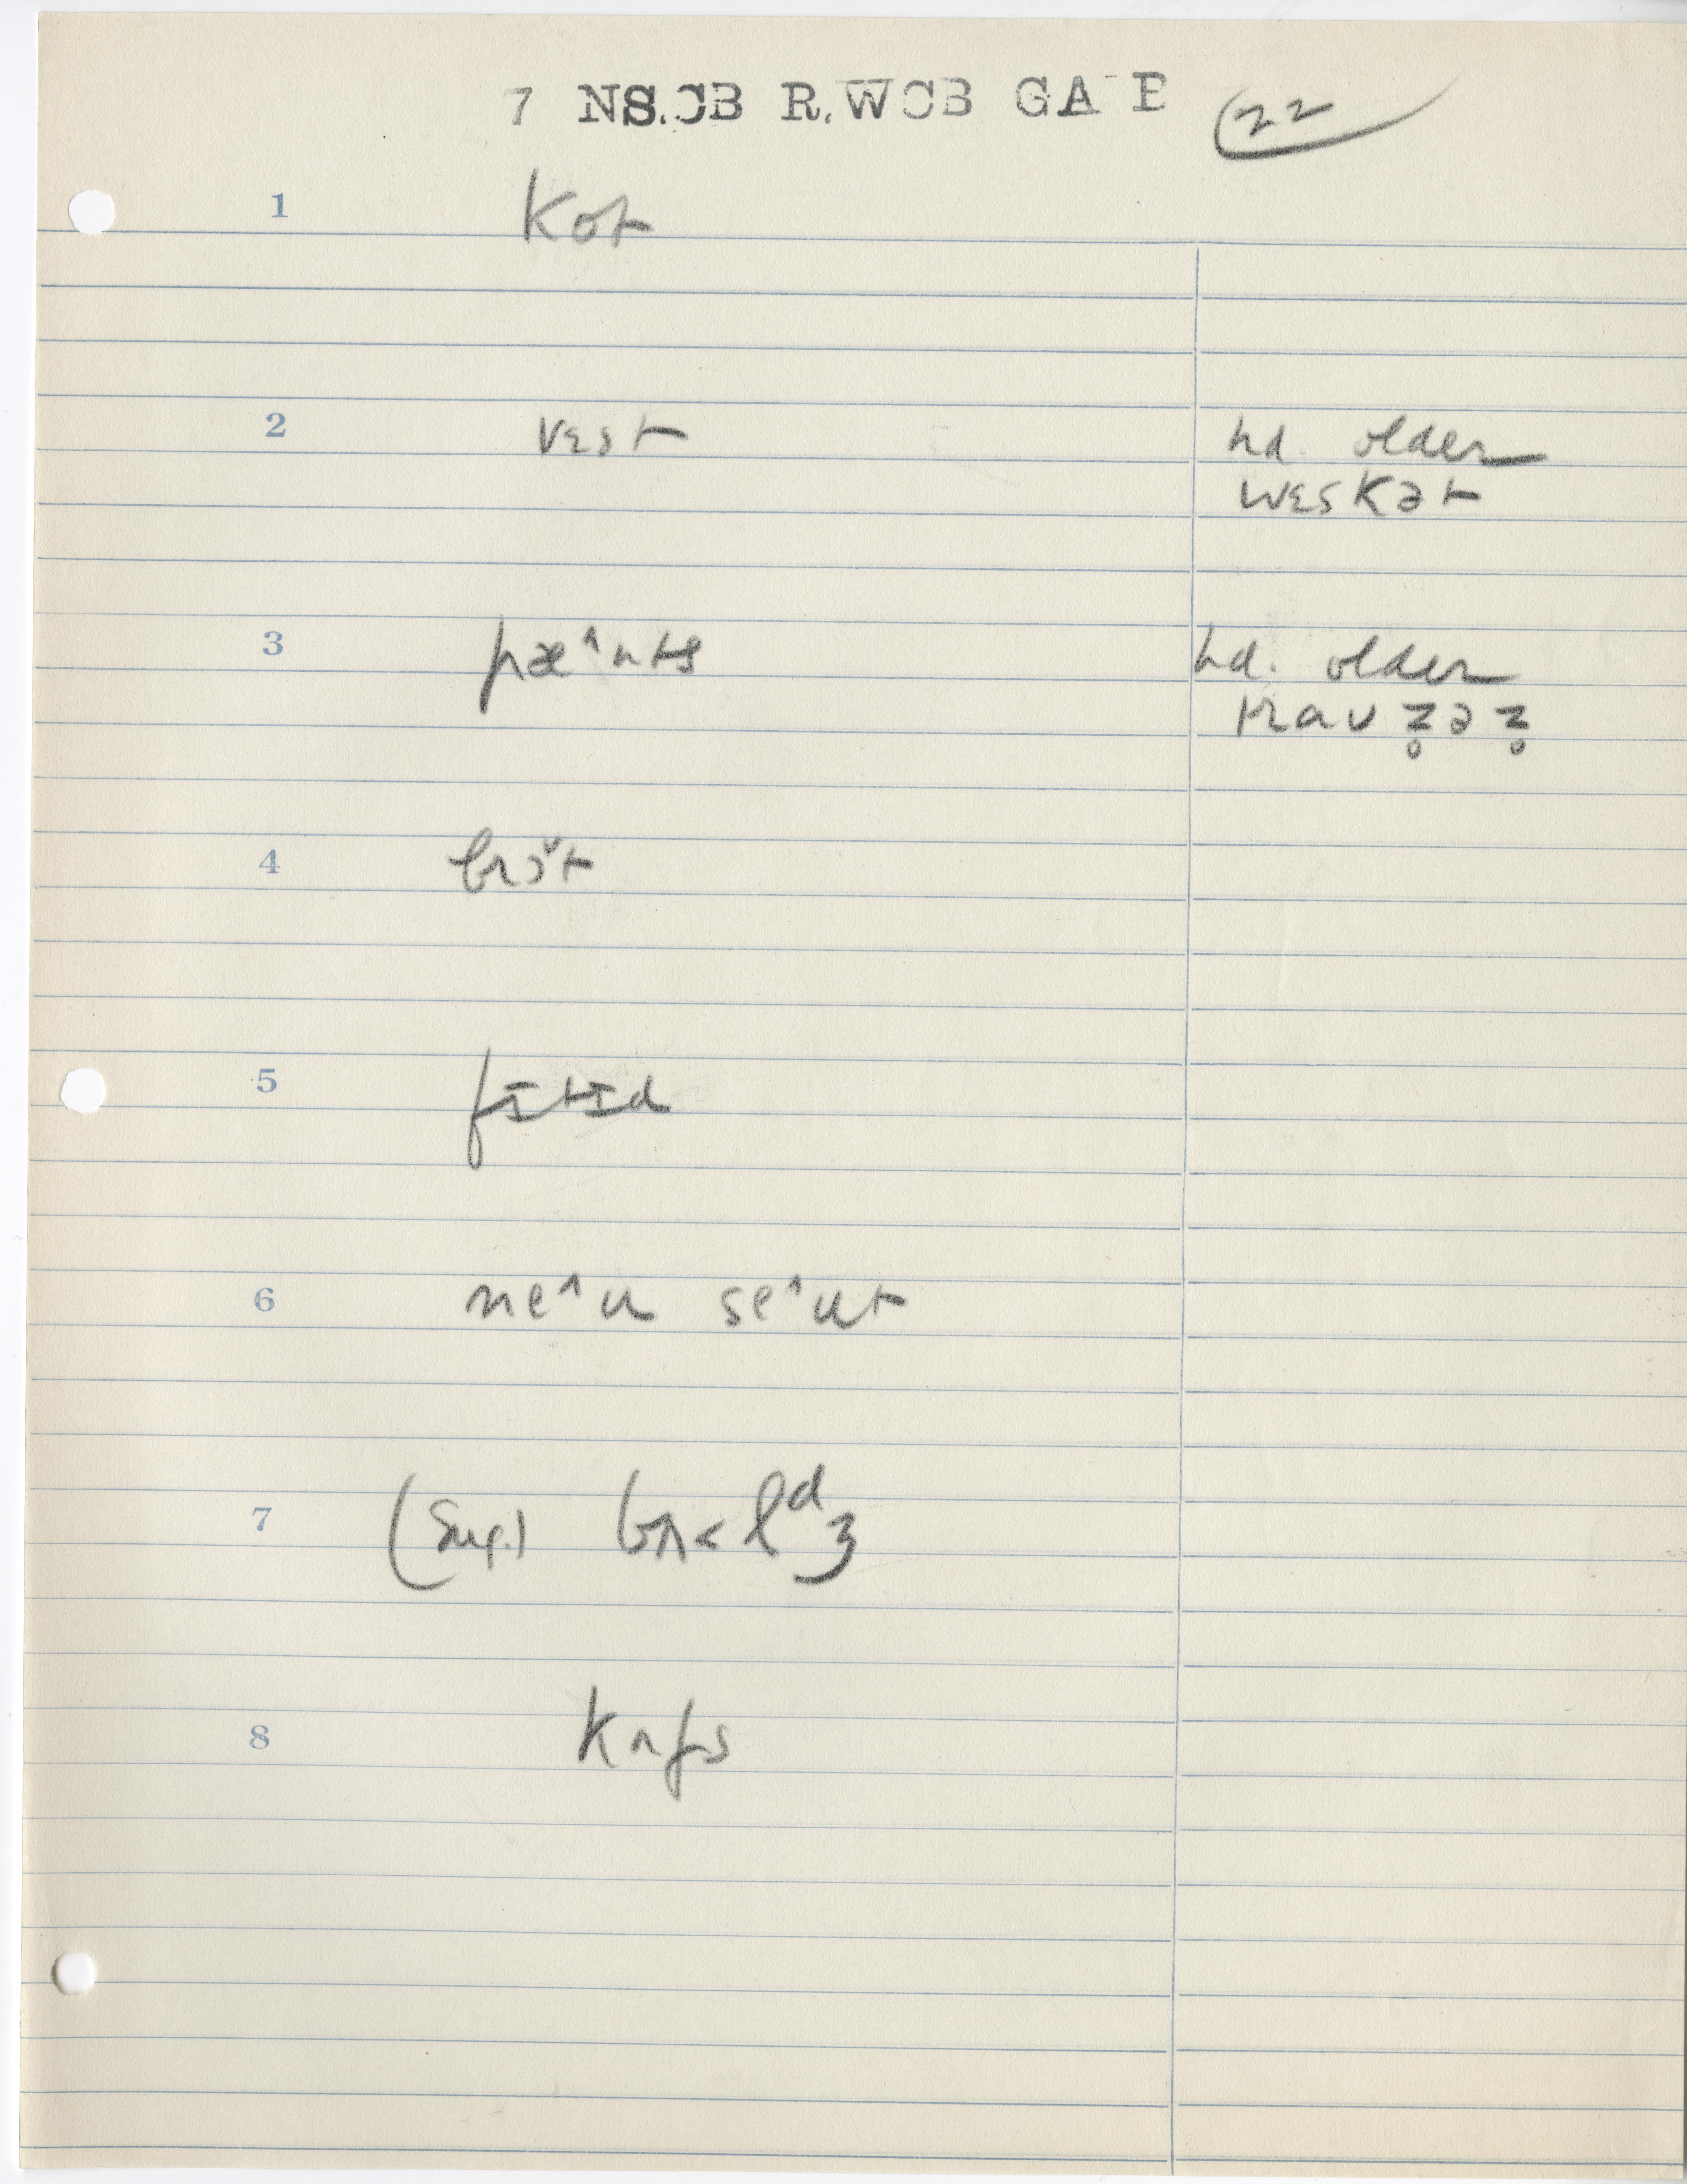 7 NS.CB R.WCB GA E 22
1 kot
2 vɛst hd. older
wɛskət
3 pæ^nts hd. older
traʊz̥əz̥
4 brɔˇt
5 fɪtɪd
6 ne^u se^ut
7 (Sug.) bʌ<lᵈʒ
8 kʌfs